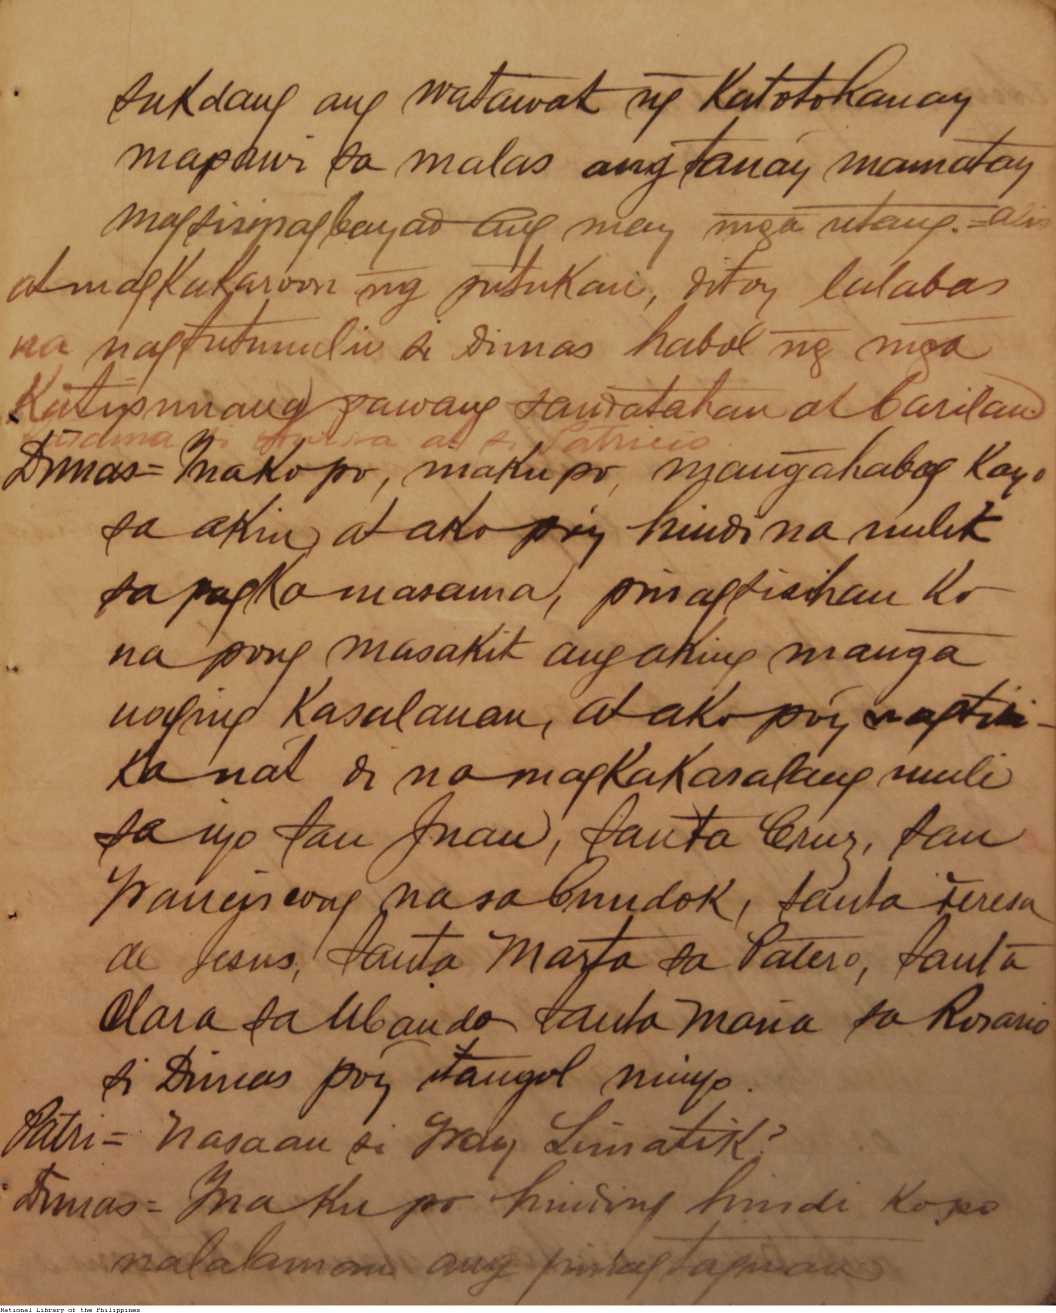 sukdang ang watawat ng Katotohanan
mapawi sa malas ang tanáy mamatay
magsisipagbayad ang may mga utang.=
at magkakaroon ng putukan, ditoy lalabas
na nagtutumulin si Dimas habol ng mga
Katipunang pawang sandatahan at barilan)
kasama si at si Patricio
Dimas= Inako po, makupo, mangahabag Kayo
sa akin, at ako póy hindi na mulit
sa pagka masama, pinagsisihan Ko
na pong masakit ang aking manga
naging Kasalanan, at ako póy nagtiti-
ka nat di na magkakasalang muli
sa iyo San Juan, Santa Cruz, San
Franciscong na sa bundok, Santa Teresa
de Jesus, Santa Marta sa Patero, Santa
Clara sa Ubando Santa Maria sa Rosario
si Dimas póy itangol ninyo.
Patri= Nasaan si Fray Limatik?
Dimas= Ina Ku po hinding hindi Ko po
nalalaman ang pinagtaguan